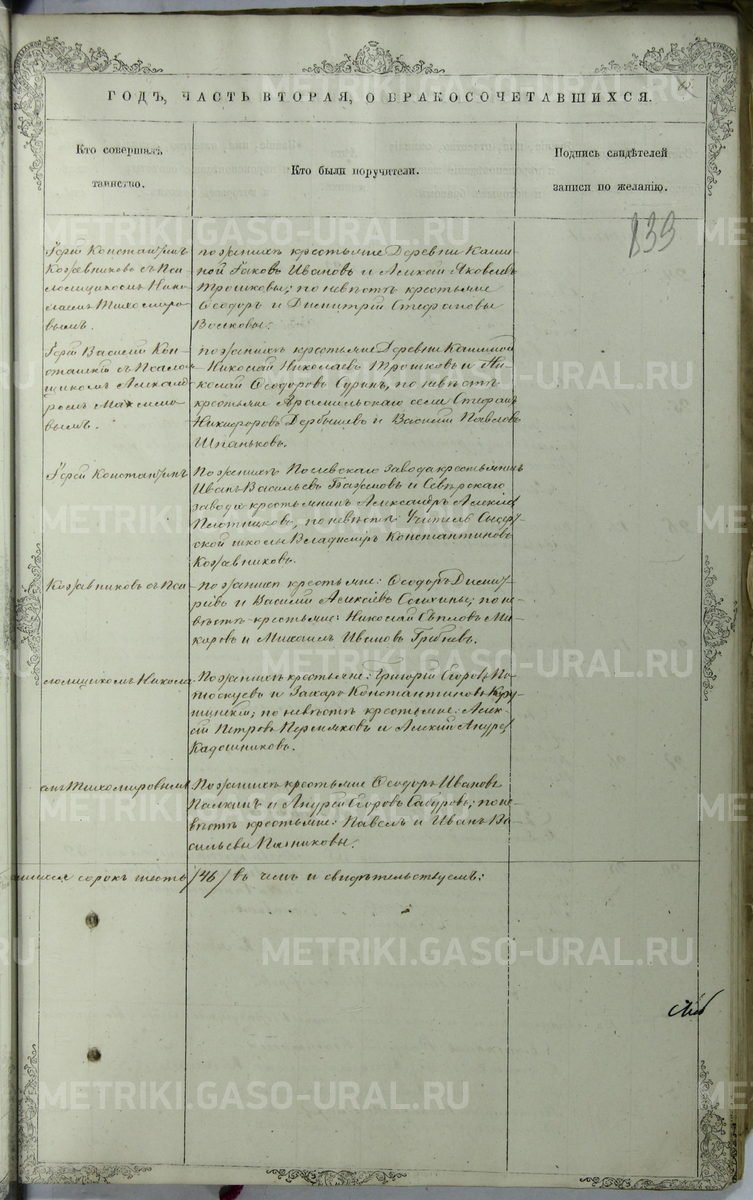 ГОДЪ, ЧАСТЬ ВТОРАЯ, О БРАКОСОЧЕТАВШИХСЯ.
Кто совершалъ
таинство.
Кто были поручители.
Подпись свидѣтелей
записи по желанію.
839
Іерей Константинъ
Кожевниковъ съ Пса
ломщикомъ Нико
лаемъ Тихомиро
вымъ.
по женихѣ крестьяне Деревни Каши
ной Іаковъ Ивановъ и Алексѣй Яковлевъ
Трошковы; по невѣстѣ крестьяне
Ѳеодоръ и Димитрій Стефановы
Волковы.
Іерей Василій Кон
съ Псалом
щикомъ Александ
ромъ Максимо
вымъ.
по женихѣ крестьяне Деревни Кашиной
Николай Николаевъ Трошковъ и Ни
колай Ѳеодоровъ Суринъ, по невѣстѣ
крестьяне Арамильскаго села Стефанъ
Никифоровъ Дербышевъ и Василій Павловъ
Шпаньковъ.
Іерей Константинъ
По женихѣ Полевскаго завода крестьянинъ
Иванъ Васильевъ Бажовъ и Сѣверскаго
завода крестьянинъ Александръ Алексѣев
Плотниковъ, по невѣстѣ: Учитель Сысерт
ской школы Владиміръ Константиновъ
Кожевниковъ.
Кожевниковъ съ Пса
По женихѣ крестьяне: Ѳеодоръ Димит
ріевъ и Василій Алексѣевъ; по не
вѣстѣ крестьяне: Николай Ма
каровъ и Михаилъ Ивановъ.
ломщикомъ Никола
По женихѣ крестьяне: Григорій Егоровъ По
тоскуевъ и Захаръ Константиновъ;
по невѣстѣ крестьяне: Алек
сѣй Петровъ Пермяковъ и Алексѣй Андреев
Кадошниковъ.
емъ Тихомировымъ
По женихѣ крестьяне Ѳеодоръ Ивановъ
Палкинъ и Андрей Егоровъ Сабуровъ; по не
вѣстѣ крестьяне: Павелъ и Иванъ Ва
сильевы.
сорокъ шесть /46/ въ чемъ и свидѣтельствуемъ:
METRIKI.GASO-URAL.RU